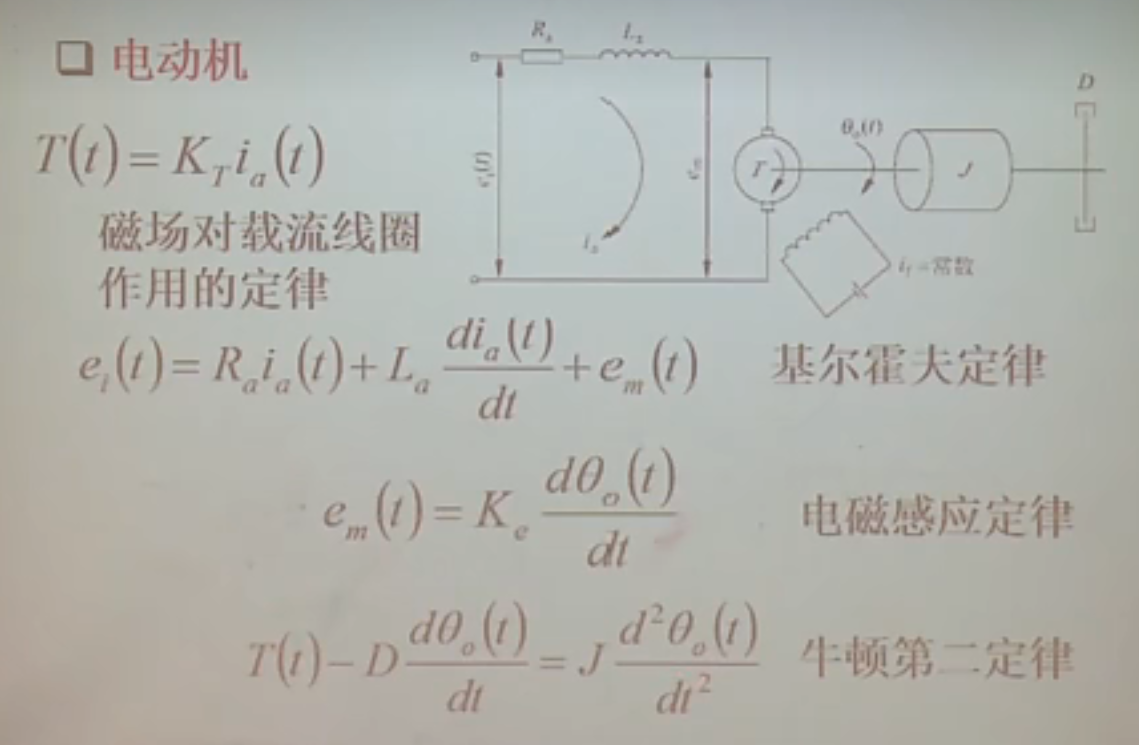 ❑ 电动机
R_a L_a
D
T(t) = K_T i_a(t)
e_i(t)
e_m
T
θ_o(t)
J
磁场对载流线圈
作用的定律
i_a
i_f = 常数
e_i(t) = R_a i_a(t) + L_a di_a(t)/dt + e_m(t) 基尔霍夫定律
e_m(t) = K_e dθ_o(t)/dt 电磁感应定律
T(t) − D dθ_o(t)/dt = J d²θ_o(t)/dt² 牛顿第二定律